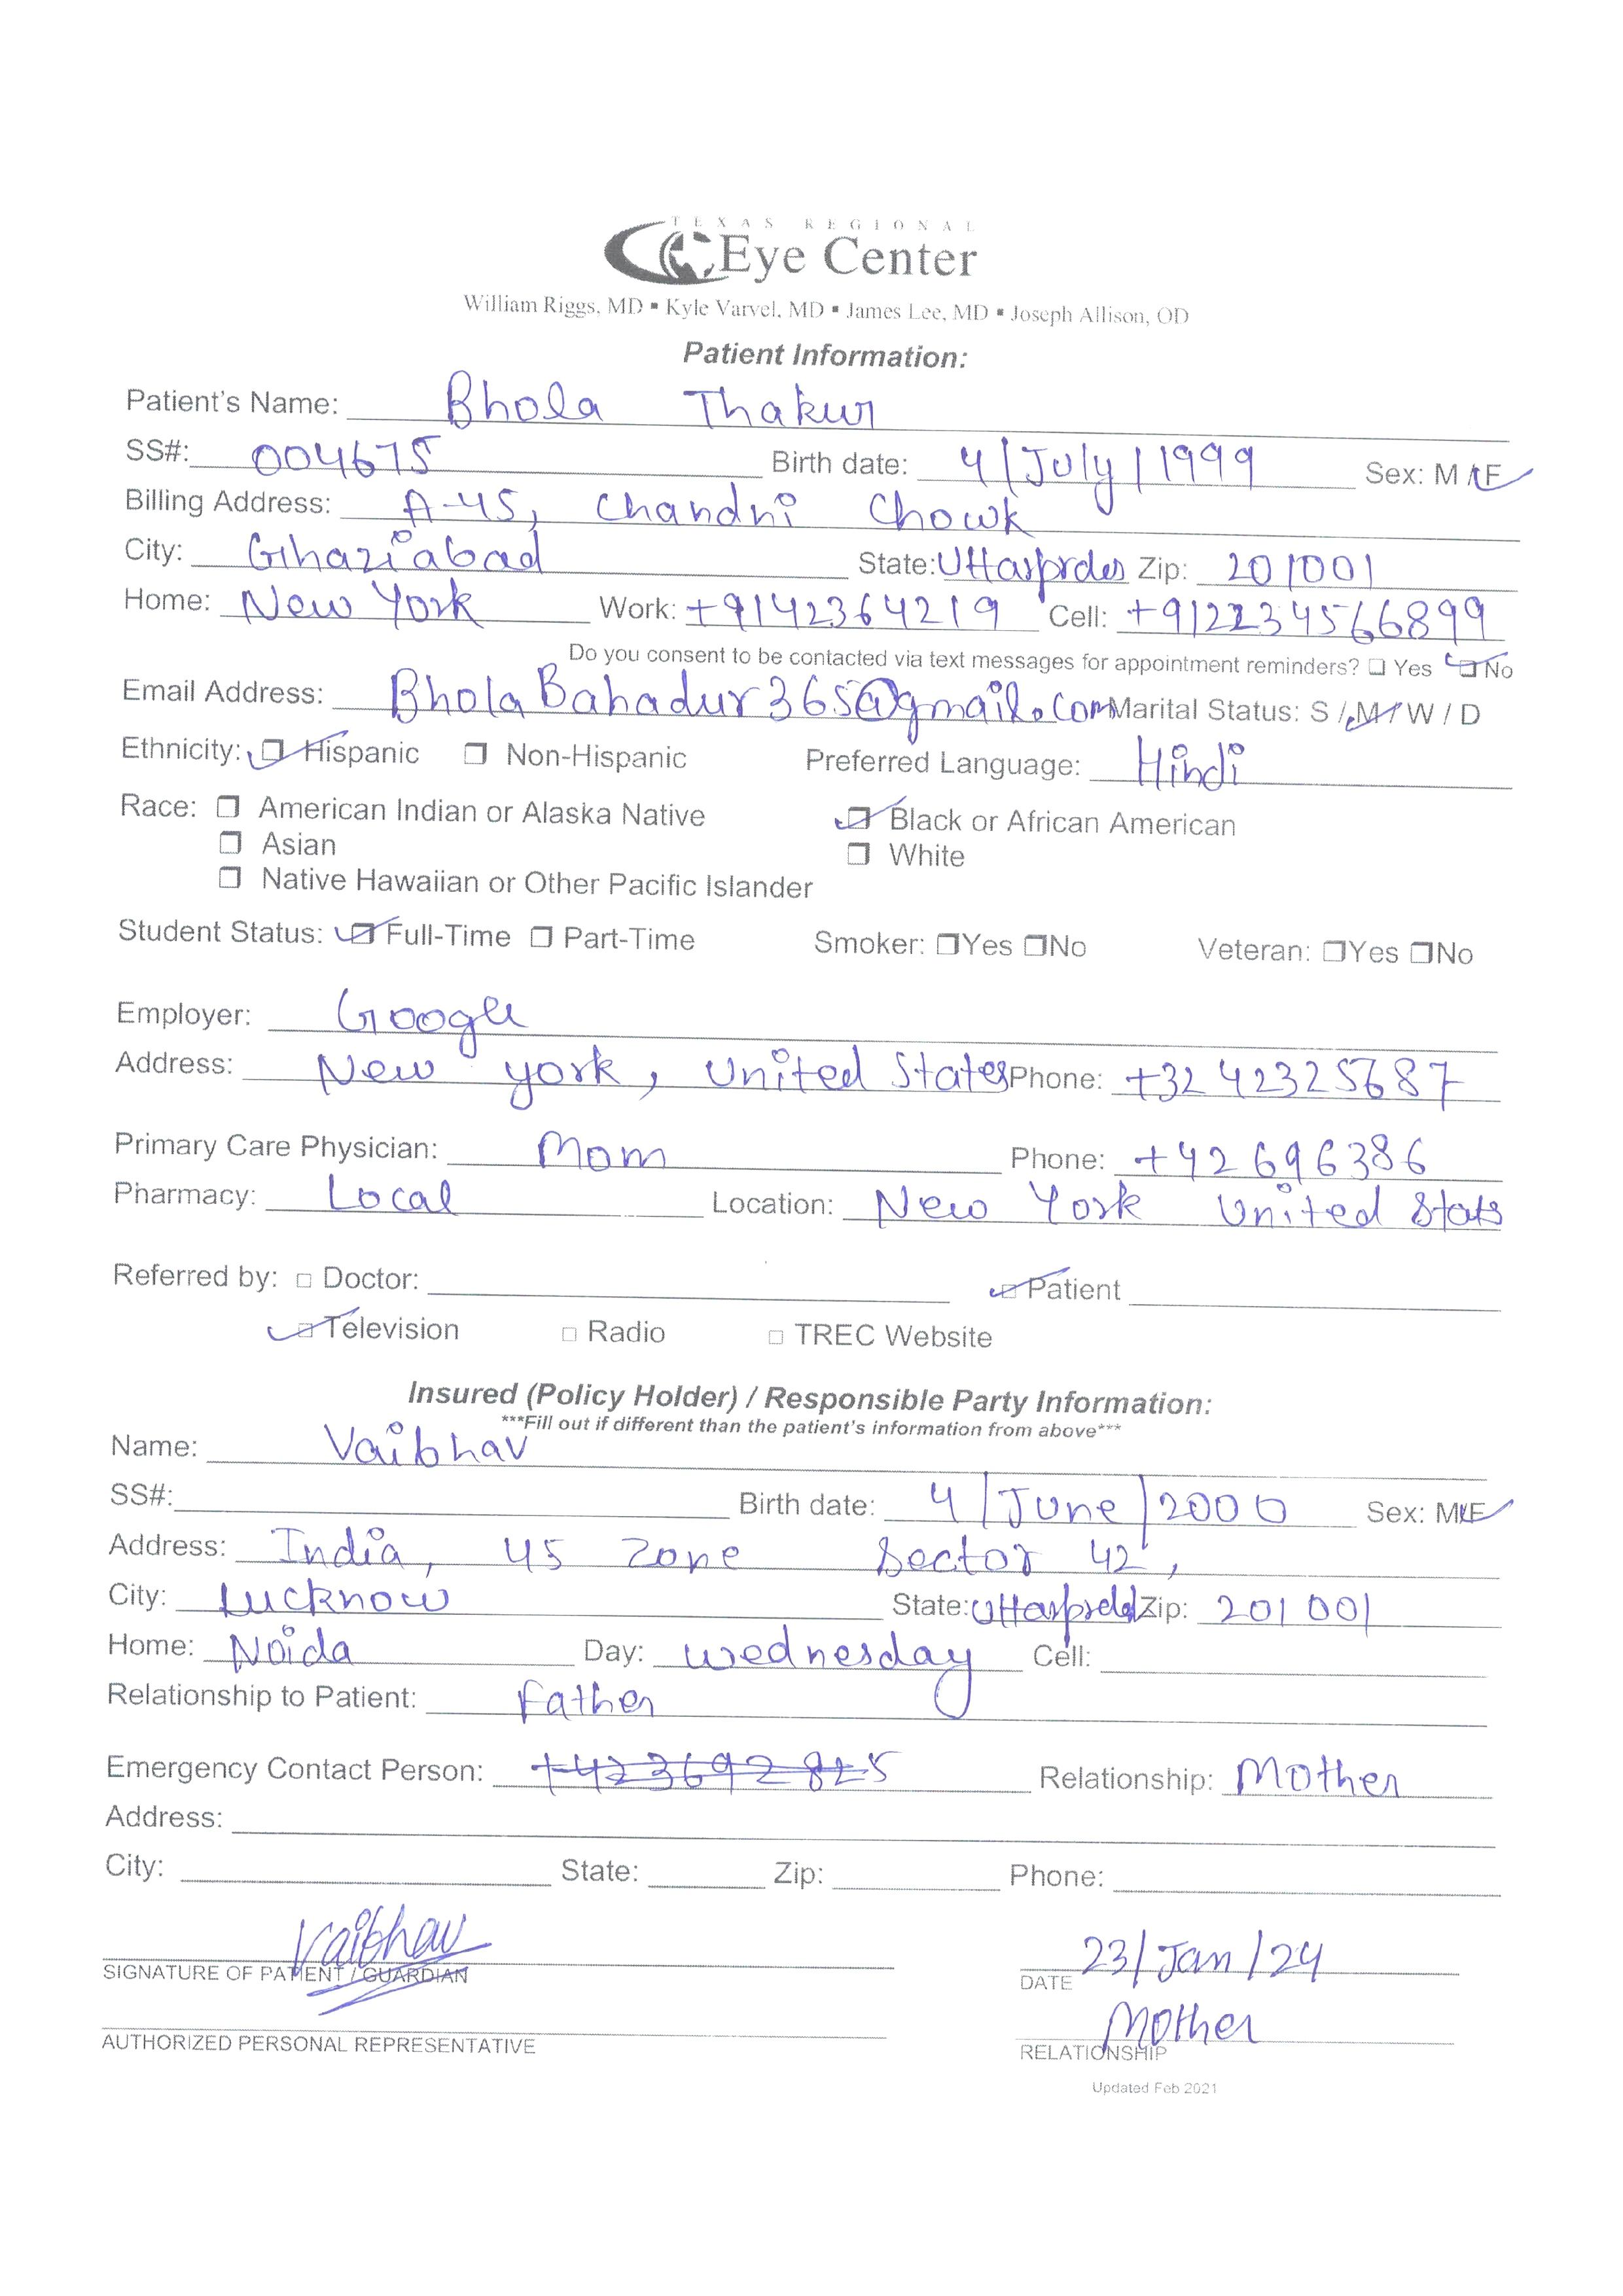 TEXAS REGIONAL
Eye Center
William Riggs, MD ▪ Kyle Varvel, MD ▪ James Lee, MD ▪ Joseph Allison, OD
Patient Information:
Patient's Name: Bhola Thakur
SS#: 004675 Birth date: 4/July/1999 Sex: M / F
Billing Address: A-45, Chandni Chowk
City: Ghaziabad State: Uttarprdes Zip: 201001
Home: New York Work: +9142364219 Cell: +912234566899
Do you consent to be contacted via text messages for appointment reminders? ❑ Yes ❑ No
Email Address: BholaBahadur365@gmail.com Marital Status: S / M / W / D
Ethnicity: ❑ Hispanic ❑ Non-Hispanic Preferred Language: Hindi
Race: ❑ American Indian or Alaska Native ❑ Black or African American
❑ Asian ❑ White
❑ Native Hawaiian or Other Pacific Islander
Student Status: ❑ Full-Time ❑ Part-Time Smoker: ❑Yes ❑No Veteran: ❑Yes ❑No
Employer: Google
Address: New york, United States Phone: +3242325687
Primary Care Physician: Mom Phone: +42696386
Pharmacy: Local Location: New York United Stats
Referred by: □ Doctor: □ Patient
□ Television □ Radio □ TREC Website
Insured (Policy Holder) / Responsible Party Information:
***Fill out if different than the patient's information from above***
Name: Vaibhav
SS#: Birth date: 4/June/2000 Sex: M/F
Address: India, 45 Zone Sector 42,
City: Lucknow State: Zip: 201001
Home: Noida Day: Wednesday Cell:
Relationship to Patient: Father
Emergency Contact Person: +423692825 Relationship: Mother
Address:
City: State: Zip: Phone:
Vaibhav 23/Jan/24
SIGNATURE OF PATIENT / GUARDIAN DATE
Mother
AUTHORIZED PERSONAL REPRESENTATIVE RELATIONSHIP
Updated Feb 2021